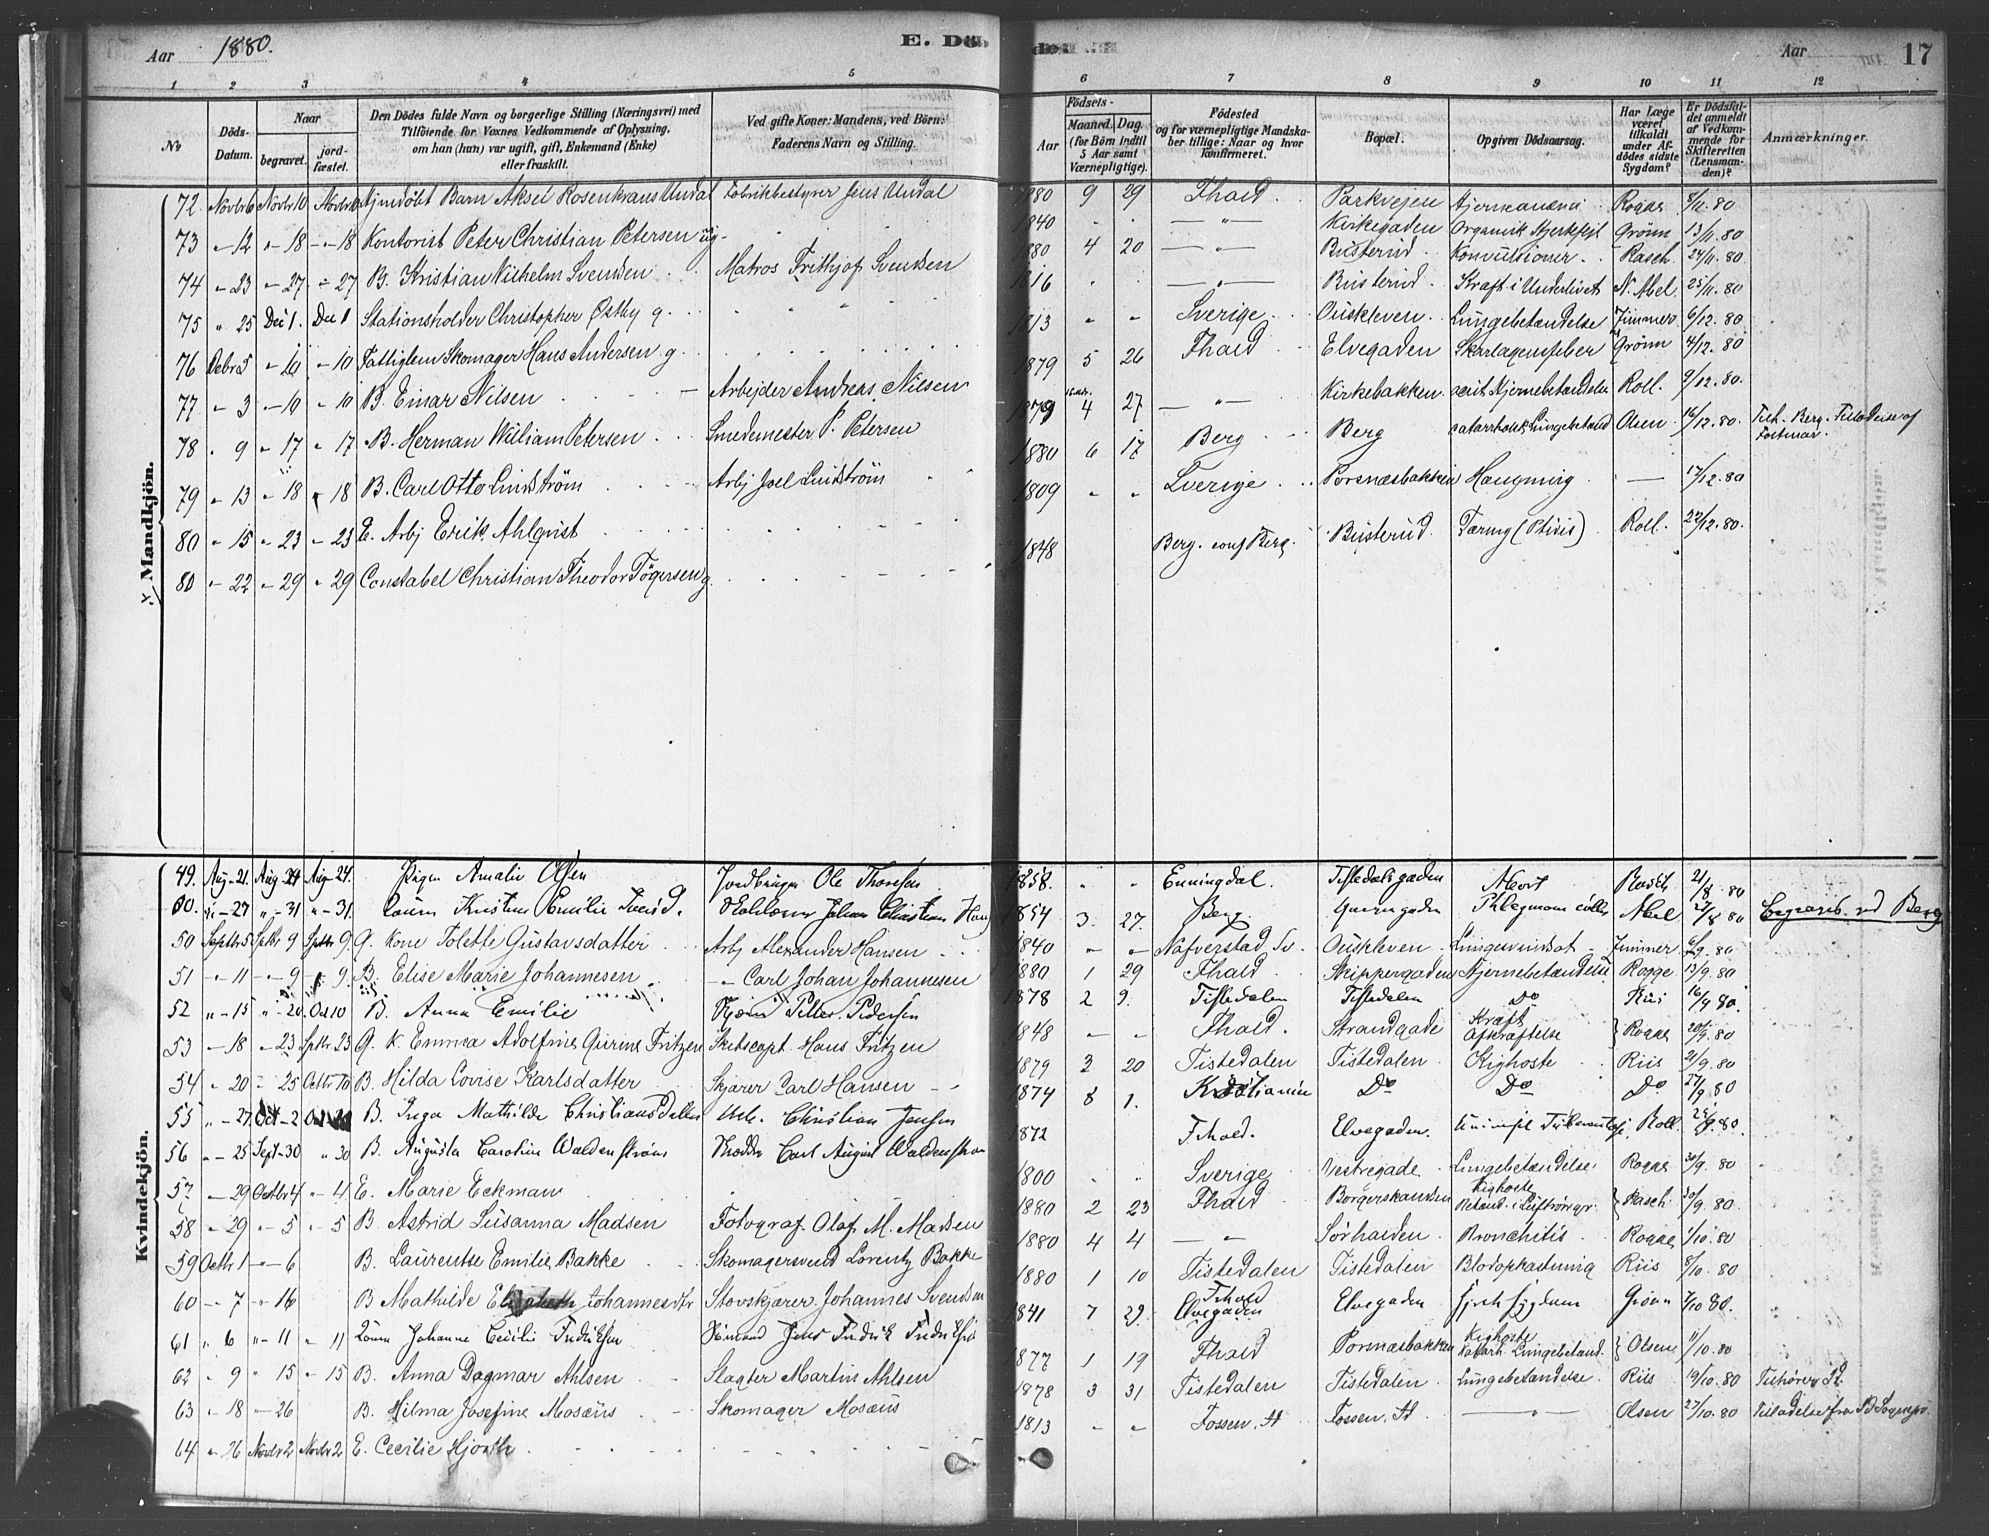 Aar 1880. E. Döde. Aar 17
1 2 3 4 5 6 7 8 9 10 11 12
No
Döds-Datum.
Naar
begravet.
jordfæstet.
Den Dödes fulde Navn og borgerlige Stilling (Næringsvei) med
Tilföiende for Voxnes Vedkommende af Oplysning,
om han (hun) var ugift, gift, Enkemand (Enke)
eller fraskilt.
Ved gifte Koner: Mandens, ved Börn:
Faderens Navn og Stilling.
Födsels-
Aar
Maaned. Dag.
(for Börn indtil
5 Aar samt
Værnepligtige).
Födested
og for værnepligtige Mandska-
ber tillige: Naar og hvor
konfirmeret.
Bopæl.
Opgiven Dödsaarsag.
Har Læge
været
tilkaldt
under Af-
dödes sidste
Sygdom?
Er Dödsfal-
det anmeldt
af Vedkom-
mende for
Skifteretten
(Lensman-
den)?
Anmærkninger.
Mandkjön.
72 Novbr 6 Novbr 10 Novbr 10 Hjemdöbt Barn Aksel Rosenkrans Undal Fabrikbestyrer Jens Undal 1880 9 29 Fhald Parkvejen Rogge 8/11 80
73 " 12 " 18 " 18 Kontorist Peter Christian Petersen ug 1840 " Kirkegaden Organisk Hjertefejl Grönn 13/11 80
74 " 23 " 27 " 27 B. Kristian Vilhelm Svendsen Matros Frithjof Svendsen 1880 4 20 " Busterud Konvulsioner Rasch 24/11 80
75 " 25 Dec 1. Dec 1 Stationsholder Christopher Østby g. 1816 " Busterud Kræft i Underlivet N. Abel 25/11 80
76 Debr 5 " 10 " 10 Fattiglem Skomager Hans Andersen g. 1813 Sverige Ouskleven Lungebetændelse 6/12 80
77 " 3 " 10 " 10 B. Einar Nilsen Arbejder Andreas Nilsen 1879 5 26 Fhald Elvegaden Skarlagensfeber Grönn 4/12 80
78 " 9 " 17 " 17 B. Herman William Petersen Smedemester P. Petersen 1879 4 27 " Kirkebakken acut Hjernebetændelse Roll. 9/12 80.
79 " 13 " 18 " 18 B. Carl Otto Lindström Arbj Joel Lindström 1880 6 17 Berg Berg catarrhalsk Lungebetænd Olsen 14/12 80. Tilh. Berg. Tilladelse af
80 " 15 " 23 " 23 E. Arbj Erik Ahlqvist 1809 Sverige Porsnæsbakken Hængning — 17/12 80
80 " 22 " 29 " 29 Constabel Christian Theodor Tögersen g 1848 Berg. conf Berg. Busterud Tæring (Ptisis) Roll. 22/12 80.
Kvindekjön.
49. Aug 21. Aug 24 Aug 24. Pigen Amalie Olsen Ole Thoresen 1858. Enningdal. Tistedalsgaden Rasch 21/8 80
" 27 " 31 " 31. Kristine Emilie 1854 3. 27. Berg Abel 27/8 80 Begravet ved Berg
50 Septbr 5 Septbr 9 Septbr 9. G. Kone Tolette Gustavsdatter Arbj Alexander Hansen 1840 Nafverstad Sv. Ouskleven 80
51 " 11 " 9 " 9. B. Elise Marie Johannesen " Carl Johan Johannesen 1880 1 29 Fhald Skippergaden Hjernebetændelse Rogge 13/9 80
52 " 15 " 20 Oct 10 B. Anna Emilie Pedersen 1878 2 9. Tistedalen Tistedalen Do Riis 16/9 80.
53 " 18 " 23 Septbr 23 G. K. Emma Adolfine Gurine Fritzen Skibscapt. Hans Fritzen 1848 Fhald. Strandgade Kræft Afkræftelse Rogge 20/9 80
54 " 20 " 25 Octbr 10 B. Hilda Lovise Karlsdatter Skjærer Carl Hansen 1879 3 20 Tistedalen Tistedalen Kighoste Riis 21/9 80
55 " 27 Oct 2 B. Inga Mathilde Christiansdatter Arb. Christian Jensen 1874 8 1. Kristiania Do Do Do 27/9 80
56 " 25 Sept 30 " 30 B. Augusta Caroline Waldenström Carl August Waldenström 1872 Fhald. Elvegaden. Roll 80.
57 " 29 Octbr 4 " 4. E. Marie Eckman 1800 Sverige Vestregade Lungebetændelse Rogge 30/9 80
58 " 29 " 5 " 5 B. Astrid Susanna Madsen Fotograf Olaf M. Madsen 1880 2 23 Fhald Borgerskandsen Kighoste Betænd. i Luftrörgr Rasch 30/9 80.
59 Octbr 1 " 6 B. Laurentse Emilie Bakke Skomagersvend Lorentz Bakke 1880 4 4 " Sörhalden Bronchitis Rogge 1/10 80
60 " 7 " 16 B Mathilde Elisabeth Johannesdtr Stovskjærer Johannes Svendsen 1880 1 10 Tistedalen Tistedalen Blodopkastning Riis 8/10 80
61 " 6 " 11 " 11 Johanne Cecilie Fredriksen Jens Fredrik Fredriksen 1841 7 29. Fhald Elvegaden Elvegaden Grönn 7/10 80.
62 " 9 " 15 " 15 B. Anna Dagmar Ahlsen Slagter Martin Ahlsen 1877 1 19 Fhald Porsnæsbakken Kighoste Katarh. Lungebetænd. Olsen 11/10 80
63 " 18 " 26 B. Hilma Josefine Mosæus Skomager Mosæus 1878 3 31 Tistedalen Tistedalen Lungebetændelse Riis 19/10 80
64 " 26 Novbr 2 Novbr 2 E. Cecilie Hjorth 1813 Fossen, Fossen, " Olsen 27/10 80 Tilladelse fra